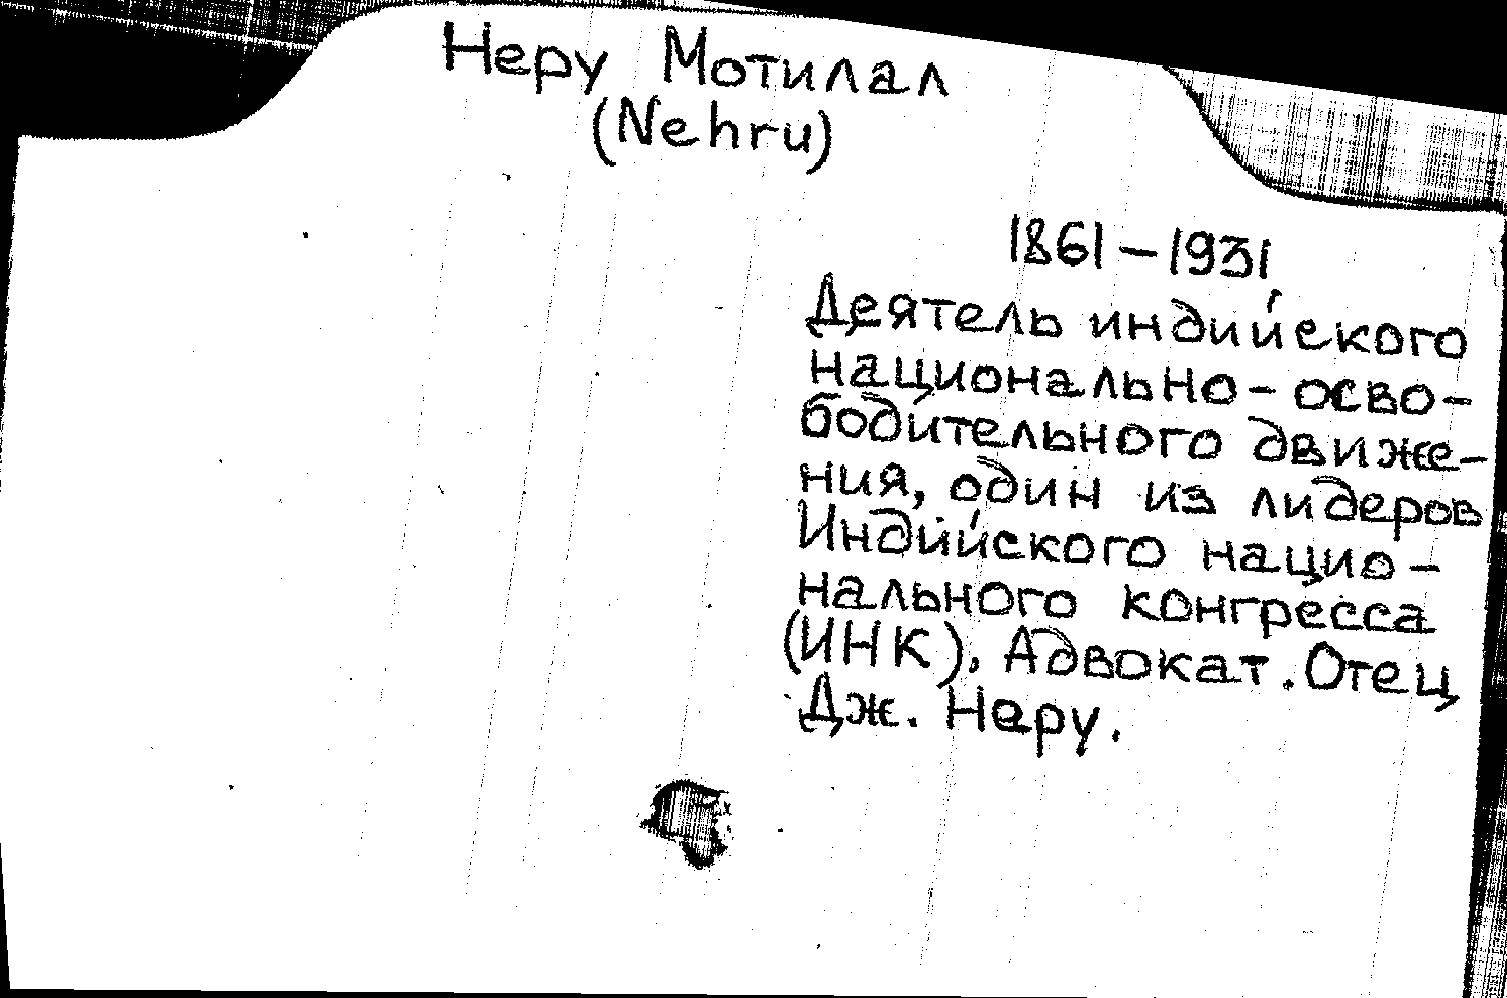 Неру Мотилал
(Nehru)
1861 – 1931.
Деятель индийского
национально-осво-
бодительного движе-
ния, один из лидеров
Индийского нацио-
нального конгресса
(ИНК). Адвокат. Отец
Дж. Неру.